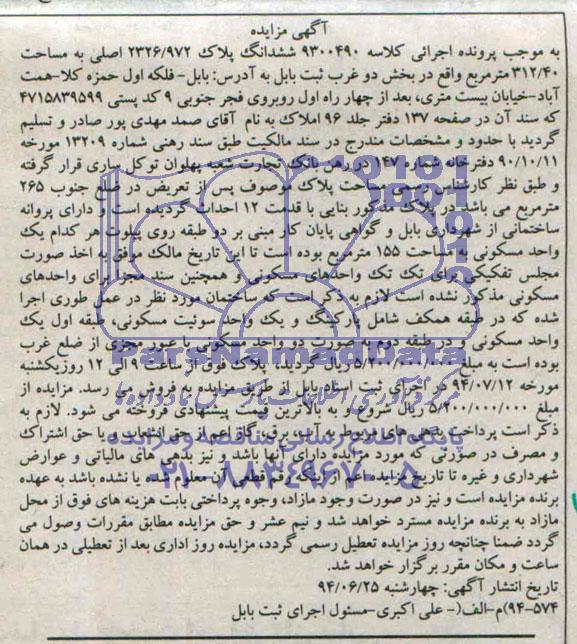 آگهی مزایده
به موجب پرونده اجرائی کلاسه ۹۳۰۰۴۹۰ ششدانگ پلاک ۲۳۲۶/۹۷۲ اصلی به مساحت
۳۱۲/۴۰ مترمربع واقع در بخش دو غرب ثبت بابل به آدرس: بابل- فلکه اول حمزه کلا-همت
آباد-خیابان بیست متری، بعد از چهار راه اول روبروی فجر جنوبی ۹ کد پستی ۴۷۱۵۸۳۹۵۹۹
که سند آن در صفحه ۱۳۷ دفتر جلد ۹۶ املاک به نام آقای صمد مهدی پور صادر و تسلیم
گردید با حدود و مشخصات مندرج در سند مالکیت طبق سند رهنی شماره ۱۳۲۰۹ مورخه
۹۰/۱۰/۱۱ دفترخانه شماره ۱۴۷ در رهن بانک تجارت شعبه پهلوان توکل ساری قرار گرفته
و طبق نظر کارشناس رسمی مساحت پلاک موصوف پس از تعریض در ضلع جنوب ۲۶۵
مترمربع می باشد در پلاک مذکور بنایی با قدمت ۱۲ احداث گردیده است و دارای پروانه
ساختمانی از شهرداری بابل و گواهی پایان کار مبنی بر دو طبقه روی پیلوت هر کدام یک
واحد مسکونی به مساحت ۱۵۵ مترمربع بوده است تا این تاریخ مالک موفق به اخذ صورت
مجلس تفکیکی برای تک تک واحدهای مسکونی و همچنین سند مجزا برای واحدهای
مسکونی مذکور نشده است لازم به ذکر است که ساختمان مورد نظر در عمل طوری اجرا
شده که در طبقه همکف شامل پارکینگ و یک واحد سوئیت مسکونی، طبقه اول یک
واحد مسکونی و در طبقه دوم بصورت دو واحد مسکونی با عبور مجزی از ضلع غرب
بوده است به مبلغ ۵/۲۰۰/۰۰۰/۰۰۰ ریال گردید، پلاک فوق از ساعت ۹ الی ۱۲ روز یکشنبه
مورخه ۹۴/۰۷/۱۲ در اجرای ثبت اسناد بابل از طریق مزایده به فروش می رسد. مزایده از
مبلغ ۵/۲۰۰/۰۰۰/۰۰۰ ریال شروع و به بالاترین قیمت پیشنهادی فروخته می شود. لازم به
ذکر است پرداخت بدهی های مربوط به آب، برق، گاز اعم از حق انشعاب و یا حق اشتراک
و مصرف در صورتی که مورد مزایده دارای آنها باشد و نیز بدهی های مالیاتی و عوارض
شهرداری و غیره تا تاریخ مزایده اعم از اینکه رقم قطعی آن معلوم شده یا نشده باشد به عهده
برنده مزایده است و نیز در صورت وجود مازاد، وجوه پرداختی بابت هزینه های فوق از محل
مازاد به برنده مزایده مسترد خواهد شد و نیم عشر و حق مزایده مطابق مقررات وصول می
گردد ضمنا چنانچه روز مزایده تعطیل رسمی گردد، مزایده روز اداری بعد از تعطیلی در همان
ساعت و مکان مقرر برگزار خواهد شد.
تاریخ انتشار آگهی: چهارشنبه ۹۴/۰۶/۲۵
۹۴-۵۷۴)م-الف(- علی اکبری-مسئول اجرای ثبت بابل
ParsNamadData
مرکز فرآوری اطلاعات پارس نماد داده ها
پایگاه اطلاع رسانی مناقصه و مزایده
۰۲۱-۸۸۳۴۹۶۷۰-۵